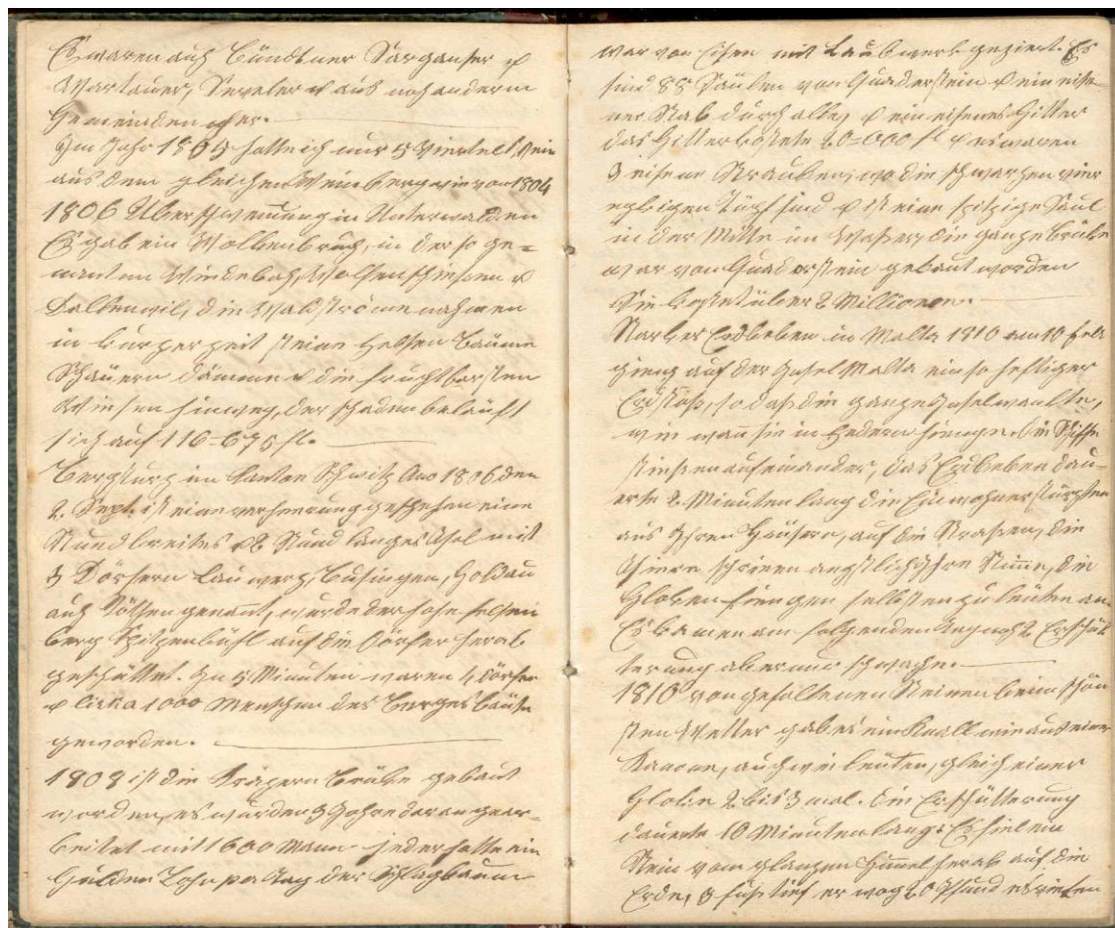 Es waren auch Bündtner Sarganser &
Wartauer, Seveler & aus noch andern
Gemeinden mer.
Im Jahr 1805 hatte ich nur 5 Viertelt Wein
aus dem gleichen Weinberg wie von 1804
1806 Überschwemung in Unterwalden
Es gab ein Wolkenbruch, in der so ge=
nanten Wolfenschiesen &
Dallenwil, die Waldströme nahmen
in kurzer zeit steine Helsen Bäume
Scheuern Dämme & die fruchtbarsten
Wiesen hinweg, der schaden beläuft
sich auf 116=675 fl.
Bergsturz im Canton Schwitz Ano 1806 den
2. Sept. ist eine verheerung geschehen eine
Stund breites & 2 Stund langes Thal mit
3 Dörfern Lauwerz, Busingen, Goldau
auch genant, wurde der hohe felsen
berg Spitzenbühl auf die Dörfer herab
geschüttet. In 5 Minuten waren 4 Dörfer
& cirka 1000 Menschen des Berges beute
geworden.
1808 ist die Brüke gebaut
worden, es wurden 3 Jahre daran gear-
beitet mit 1600 Mann jeder hatte ein
Gulden Lohn pa Tag der Schlagbaum
war von Eisen mit Laubwerk geziert. Es
sind 88 Säulen von Quaderstein & ein eise-
ner Stab durch alle, & ein eisenes Gitter
das Gitter kostete 20=000 fl & es waren
3 eiserne wo die schwarzen vier
egkigen Tüpf sind & ist eine spitzige Säul
in der Mitte im Wasser, die ganze brüke
war von Quaderstein gebaut worden
Sie kostet über 2 Millionen.
Starkes Erdbeben in Malta 1810 am 10 Feb
gieng auf der Insel Malta ein so heftiger
Erdstoß, so daß die ganze Insel wankte,
wie wan sie in Federn hienge. Die Schiffe
stießen aufeinander, das Erdbeben dau-
erte 2 Minuten lang die Einwohner stürzten
aus Ihren Häusern, auf die Straßen, die
Thiere schrieen ängstlich Ihre Stime, die
Gloken fiengen selbsten zu leuten an.
Es kamen am folgenden Tag noch 2 Erschüt
terung aber nur schwache.
1810 von gefallenen Steinen beim schön
sten Wetter gab es ein Knall wie aus einer
Kanone, auch wie leuten, gleich einer
Gloke 2 bis 3 mal. Die Erschütterung
dauerte 10 Minuten lang. Es fiel ein
Stein vom Himel herab auf die
Erde, 3 fuß tief er wog 20 Pfund es riefen